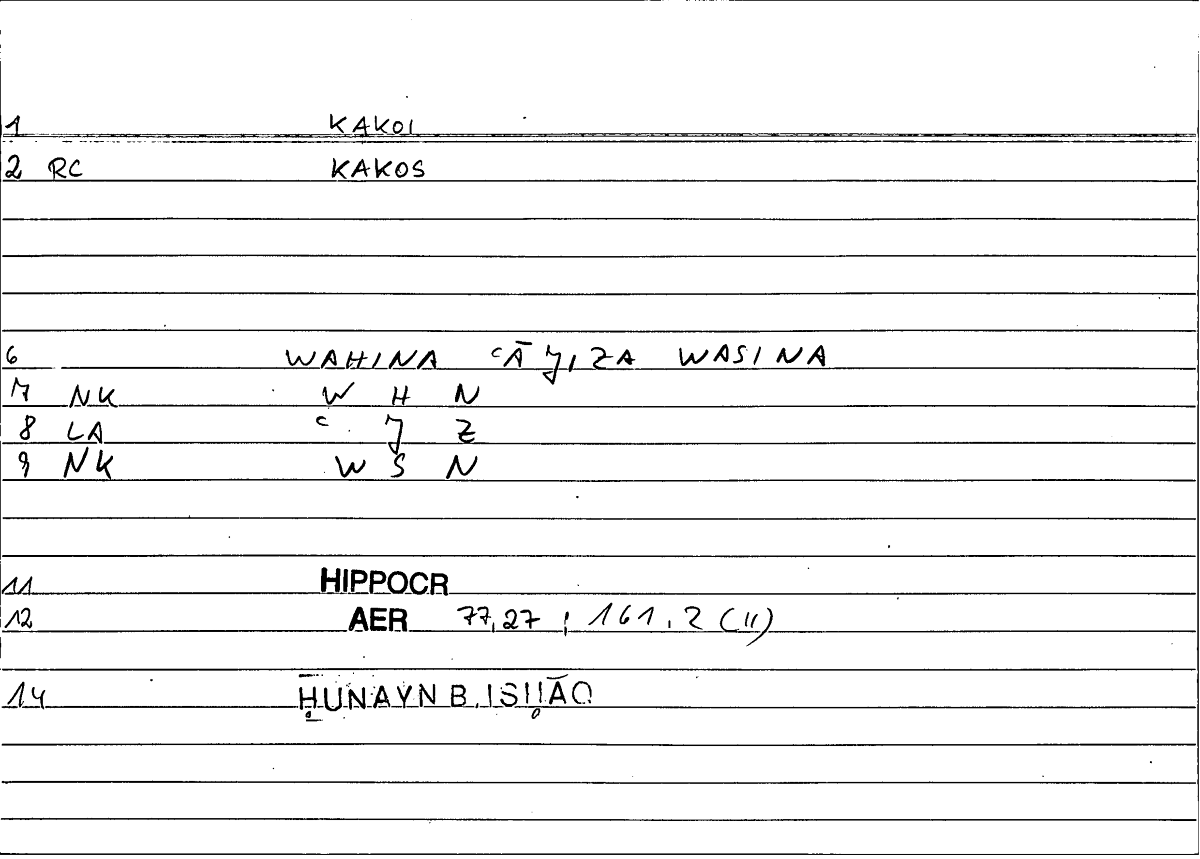 1 KAKOI
2 RC KAKOS
6 WAHINA ʿĀJIZA WASINA
7 NK W H N
8 LA ʿ J Z
9 NK W S N
11 HIPPOCR
12 AER 77,27 ; 161,2 (II)
14 ḤUNAYN B. ISḤĀQ